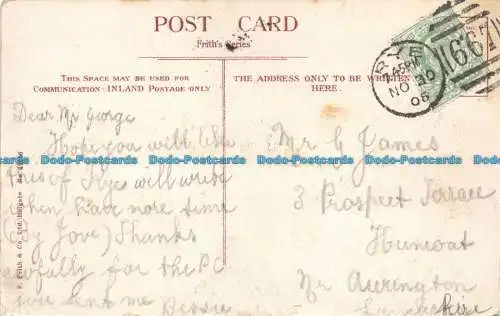 POST CARD
Frith's Series
THIS SPACE MAY BE USED FOR
COMMUNICATION - INLAND POSTAGE ONLY
THE ADDRESS ONLY TO BE WRITTEN
HERE.
RYE
45PM
NO 30
06
667
Dear Mr George
Hope you will like
this of Rye will write
when have more time
(By Jove) Thanks
awfully for the PC
you sent me Bessie
Mr G James
3 Prospect Terrace
Huncoat
Nr Accrington
Lancashire
F. Frith & Co. Ltd. Reigate
Dodo-Postcards Dodo-Postcards Dodo-Postcards Dodo-Postcards
Dodo-Postcards Dodo-Postcards Dodo-Postcards Dodo-Postcards